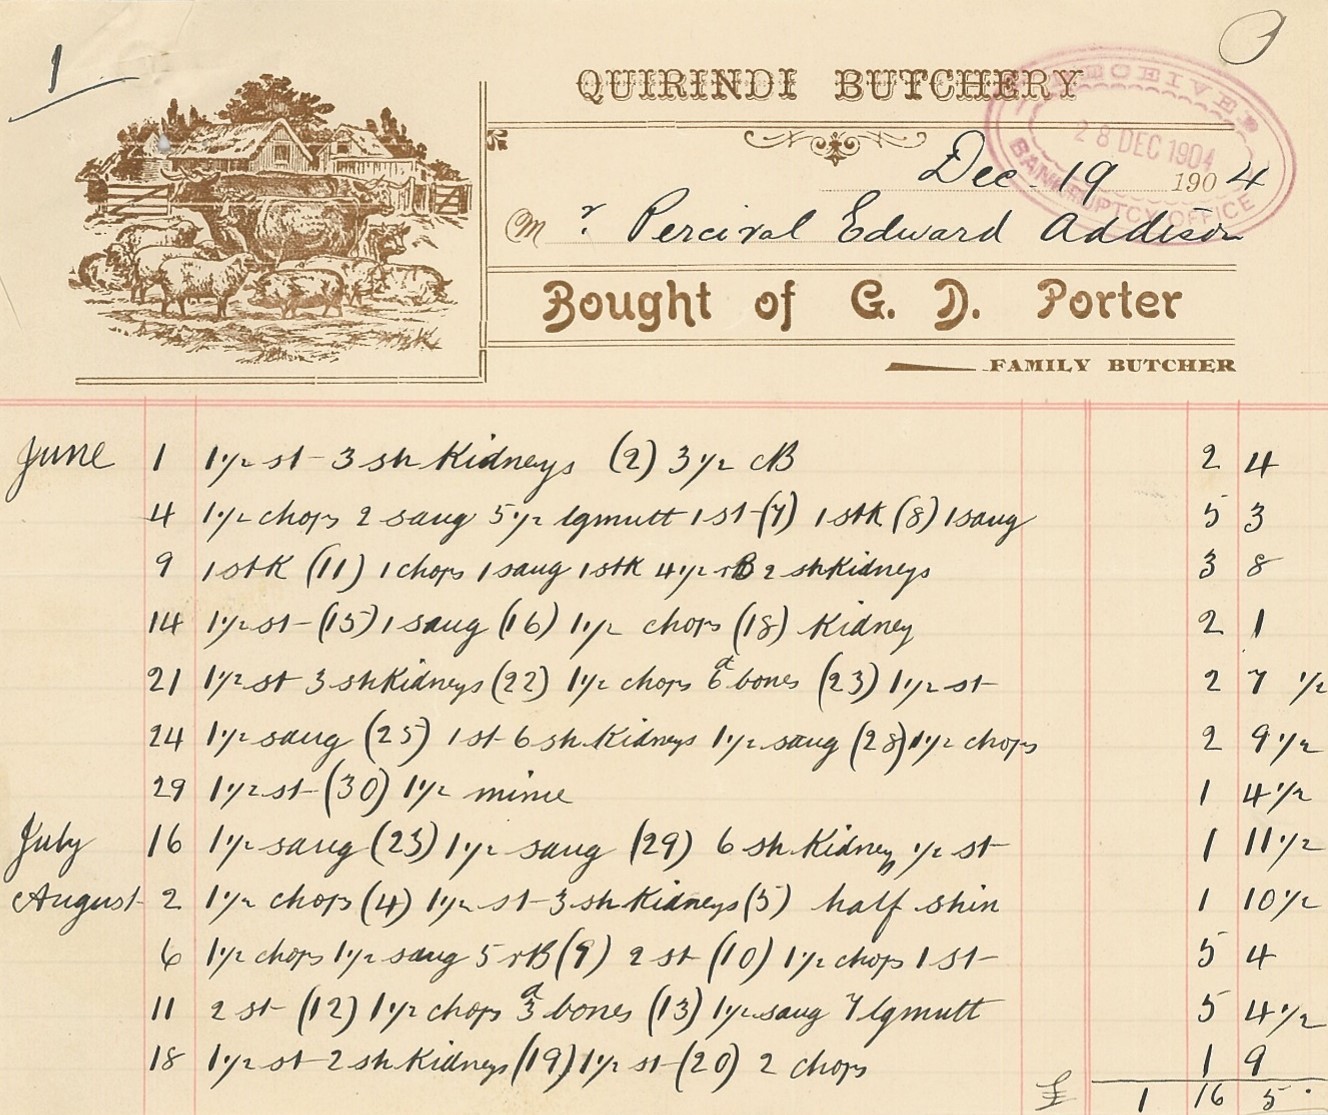 1
QUIRINDI BUTCHERY
RECEIVER
28 DEC 1904
BANKRUPTCY OFFICE
Dec. 19 1904
Mr Percival Edward Addison
Bought of G. D. Porter
FAMILY BUTCHER
June 1 1½ st 3 sh Kidneys (2) 3½ CB 2 4
4 1½ chops 2 saug 5½ lgmutt 1 st (7) 1 stK (8) 1 saug 5 3
9 1 stK (11) 1 chops 1 saug 1 stk 4½ rB 2 sh Kidneys 3 8
14 1½ st (15) 1 saug (16) 1½ chops (18) Kidney 2 1
21 1½ st 3 sh Kidneys (22) 1½ chops 6d bones (23) 1½ st 2 7½
24 1½ saug (25) 1 st 6 sh Kidneys 1½ saug (28) 1½ chops 2 9½
29 1½ st (30) 1½ mince 1 4½
July 16 1½ saug (23) 1½ saug (29) 6 sh Kidney ½ st 1 11½
August 2 1½ chops (4) 1½ st 3 sh Kidneys (5) half shin 1 10½
6 1½ chops 1½ saug 5 rB (9) 2 st (10) 1½ chops 1 st 5 4
11 2 st (12) 1½ chops 3d bones (13) 1½ saug 7 lgmutt 5 4½
18 1½ st 2 sh Kidneys (19) 1½ st (20) 2 chops 1 9
£ 1 16 5